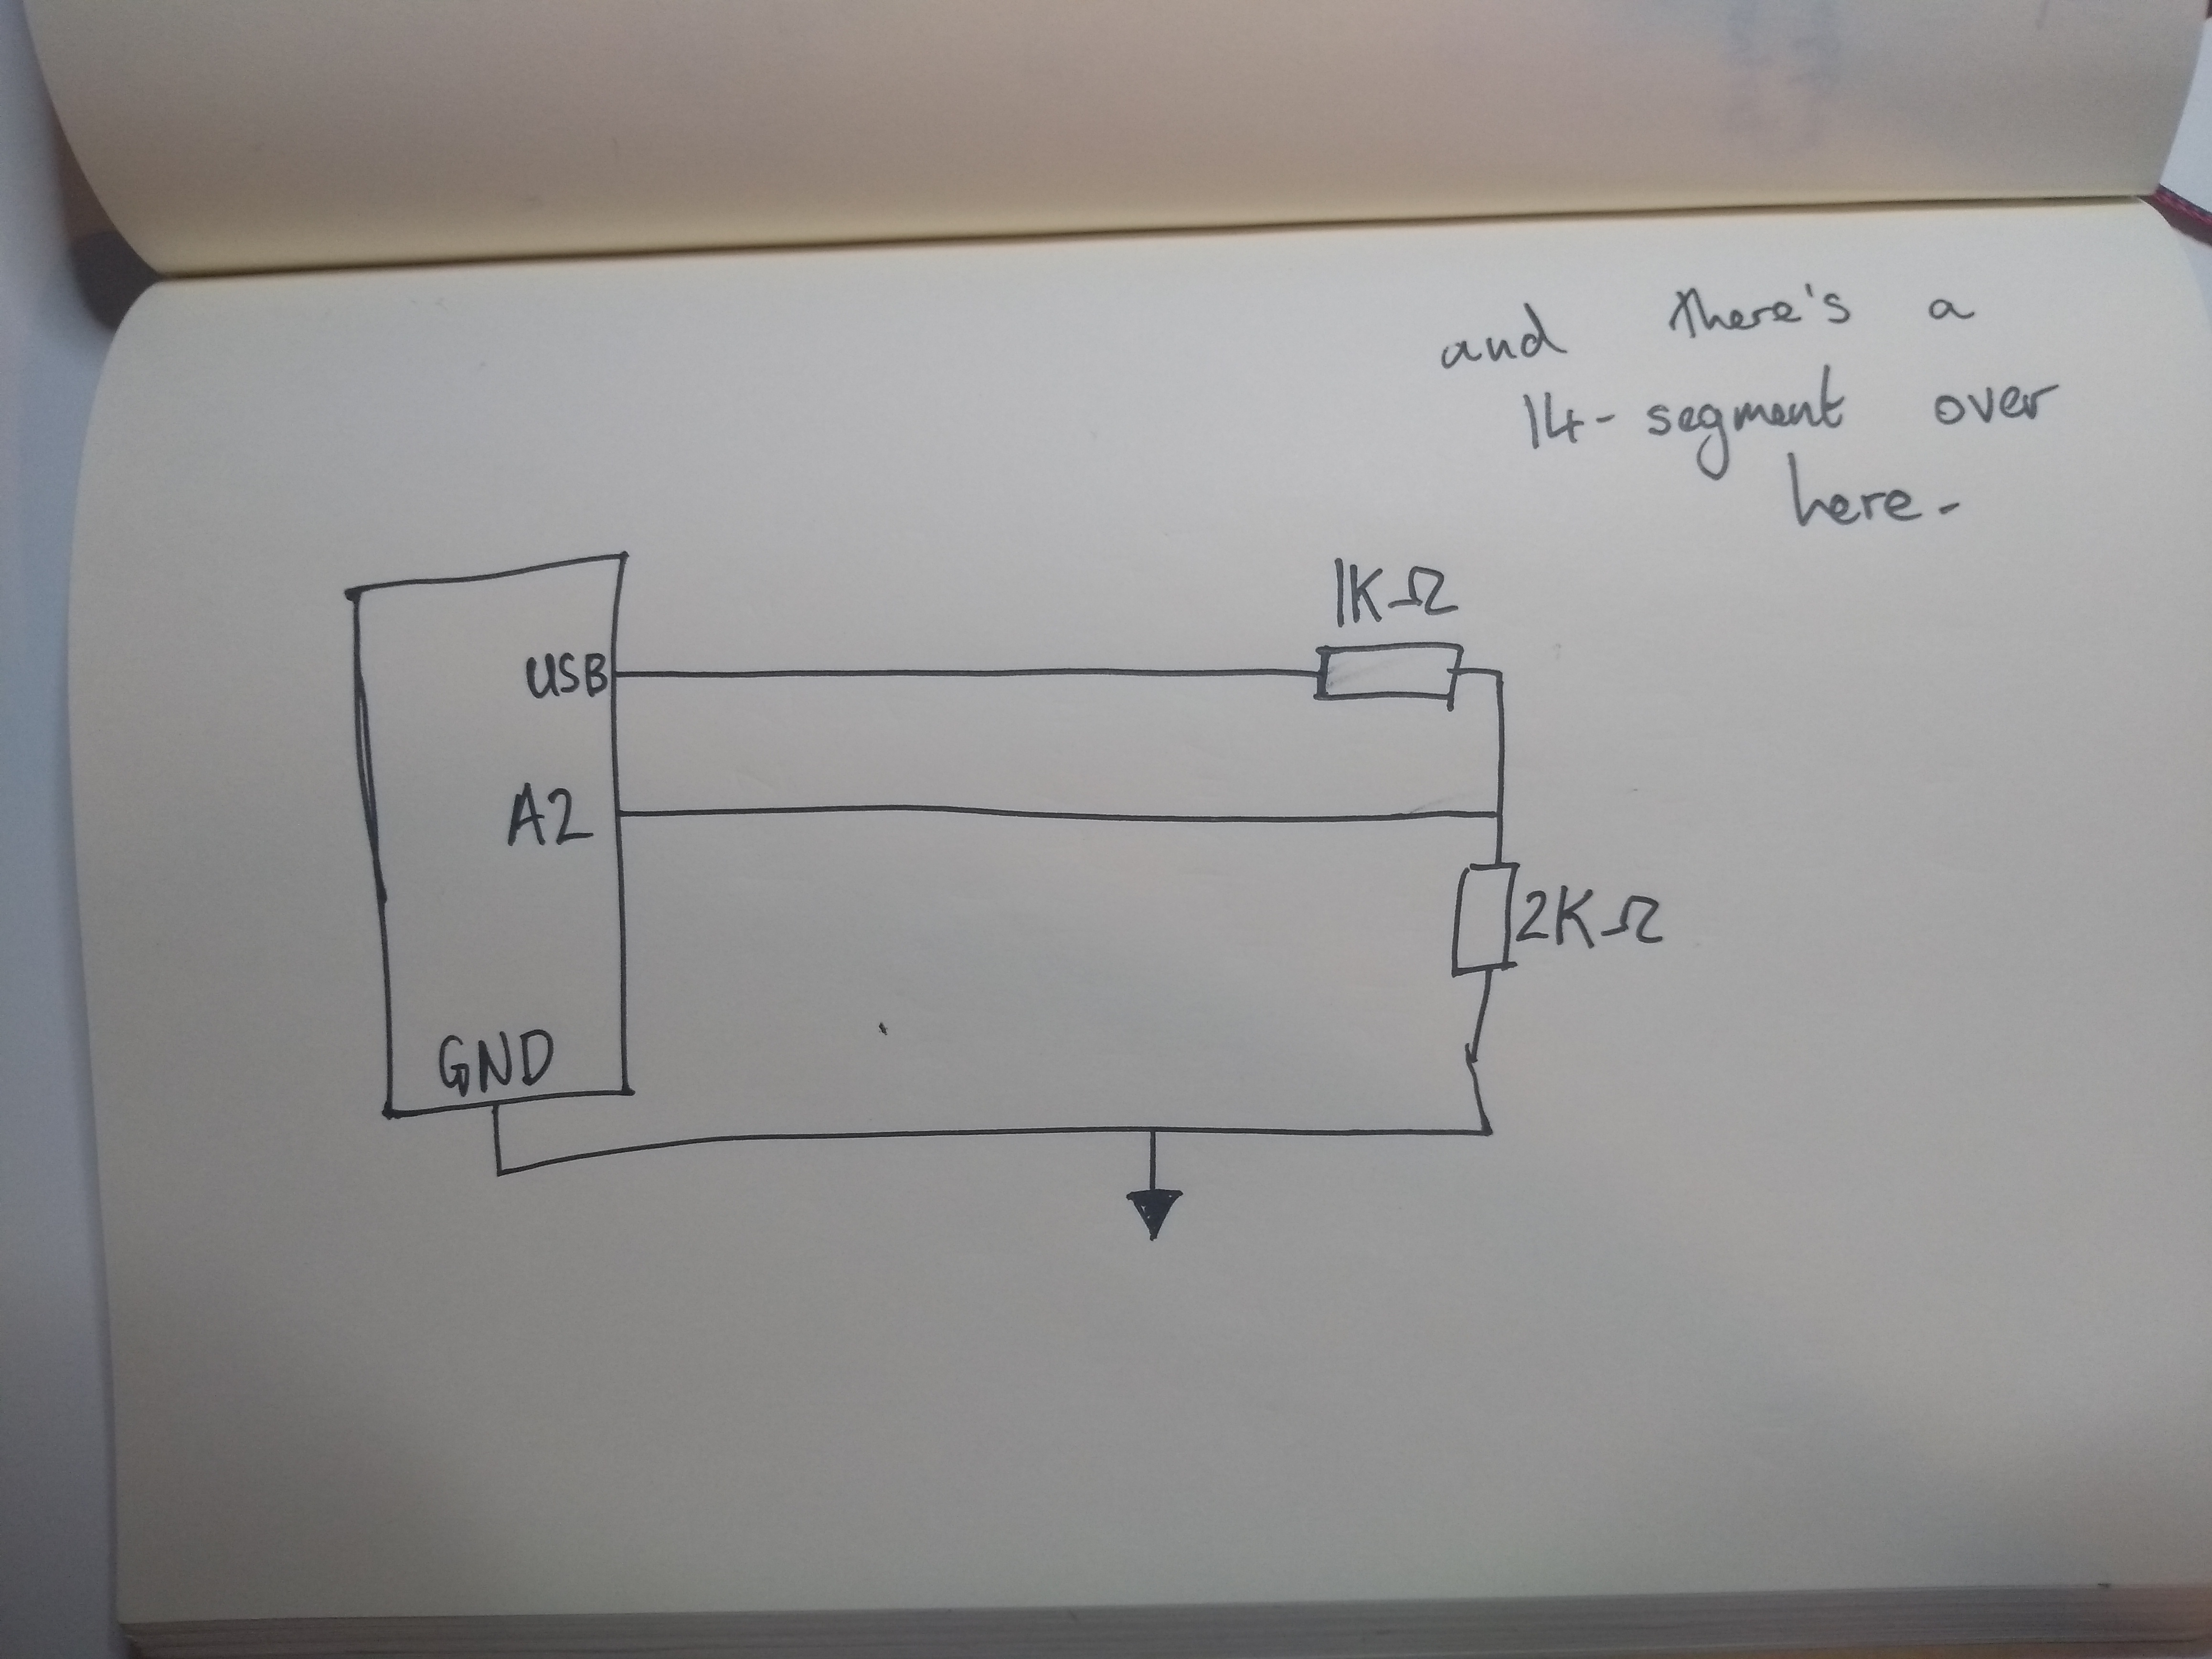 and there's a
14-segment over
here.
1KΩ
USB
A2
2KΩ
GND